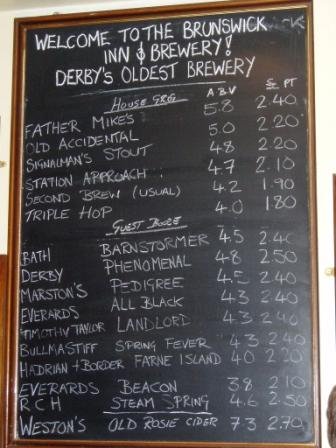 WELCOME TO THE BRUNSWICK
INN & BREWERY!
DERBY'S OLDEST BREWERY
HOUSE GRG ABV £ PT
FATHER MIKE'S 5.8 2.40
OLD ACCIDENTAL 5.0 2.20
SIGNALMAN'S STOUT 4.8 2.20
STATION APPROACH 4.7 2.10
SECOND BREW (USUAL) 4.2 1.90
TRIPLE HOP 4.0 1.80
GUEST BOOZE
BATH BARNSTORMER 4.5 2.40
DERBY PHENOMENAL 4.8 2.50
MARSTON'S PEDIGREE 4.5 2.40
EVERARDS ALL BLACK 4.3 2.40
TIMOTHY TAYLOR LANDLORD 4.3 2.40
BULLMASTIFF SPRING FEVER 4.3 2.40
HADRIAN + BORDER FARNE ISLAND 4.0 2.20
EVERARDS BEACON 3.8 2.10
RCH STEAM SPRING 4.6 2.50
WESTON'S OLD ROSIE CIDER 7.3 2.70